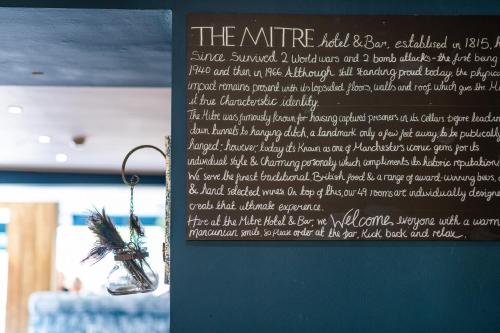 THE MITRE hotel & Bar, establised in 1815, h
Since survived 2 world wars and 2 bomb attacks - the first being
1940 and then in 1966 Although still standing proud today, the phys
impact remains present with its lopsided floors, walls and roof which gives the Mi
it true Characteristic identity.
The Mitre was furiously known for housing captured prisoners in its Cellars before leadin
down tunnels to hanging ditch, a landmark only a few feet away, to be publically
hanged; however today its known as one of Manchesters iconic gems for its
individual style & Charming personaly which compliments its historic reputation.
We serve the finest traditional British food & a range of award-winning beers,
& hand selected wines. On top of this, our 49 rooms are individually designe
create that ultimate experience.
Here at the Mitre Hotel & Bar, we Welcome everyone with a warm
mancunian smile, so please order at the bar, kick back and relax.